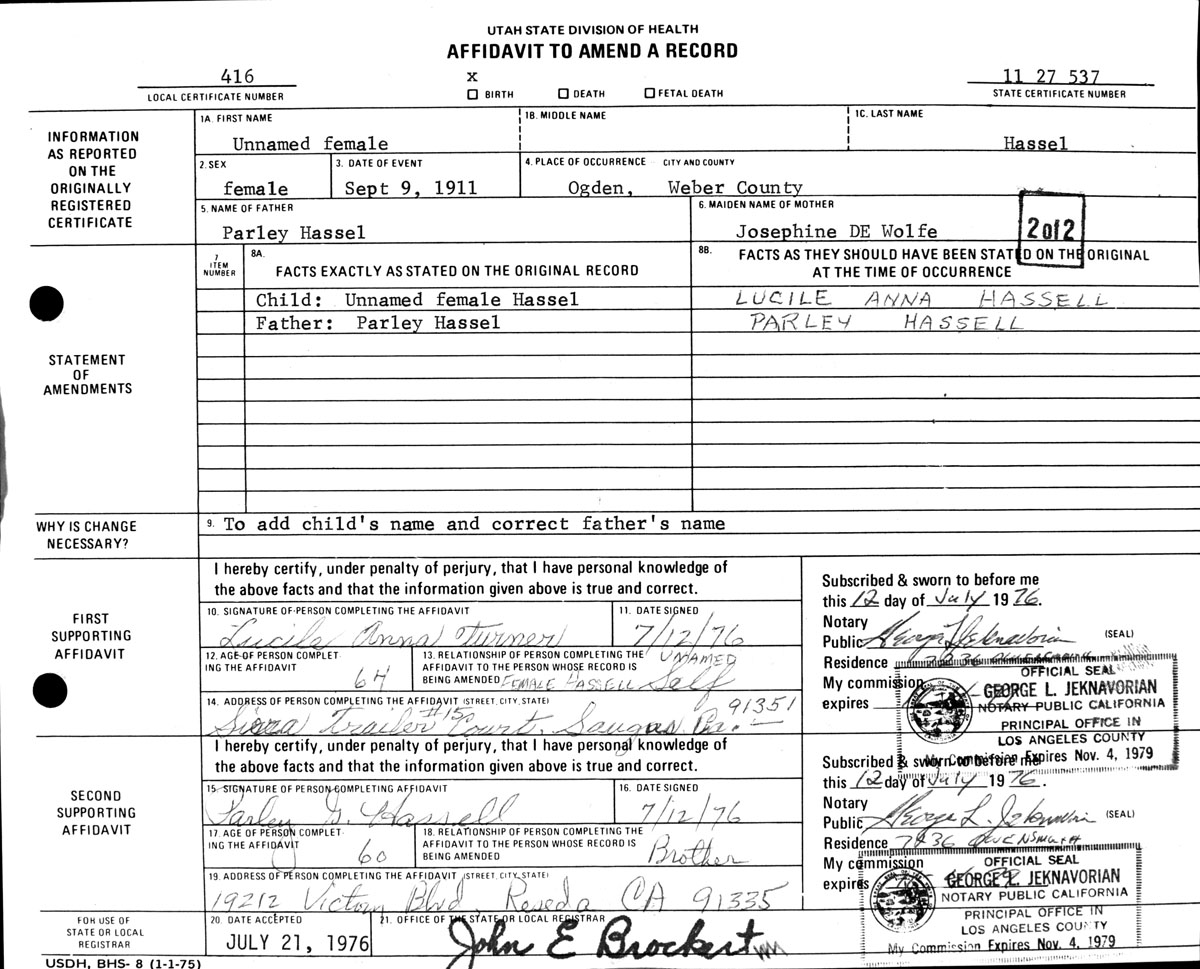 UTAH STATE DIVISION OF HEALTH
AFFIDAVIT TO AMEND A RECORD
416
LOCAL CERTIFICATE NUMBER
X
☐ BIRTH ☐ DEATH ☐ FETAL DEATH
11 27 537
STATE CERTIFICATE NUMBER
INFORMATION
AS REPORTED
ON THE
ORIGINALLY
REGISTERED
CERTIFICATE
1A. FIRST NAME
Unnamed female
1B. MIDDLE NAME
1C. LAST NAME
Hassel
2. SEX
female
3. DATE OF EVENT
Sept 9, 1911
4. PLACE OF OCCURRENCE CITY AND COUNTY
Ogden, Weber County
5. NAME OF FATHER
Parley Hassel
6. MAIDEN NAME OF MOTHER
Josephine DE Wolfe
2 of 2
STATEMENT
OF
AMENDMENTS
7
ITEM
NUMBER
8A.
FACTS EXACTLY AS STATED ON THE ORIGINAL RECORD
8B. FACTS AS THEY SHOULD HAVE BEEN STATED ON THE ORIGINAL
AT THE TIME OF OCCURRENCE
Child: Unnamed female Hassel
LUCILE ANNA HASSELL
Father: Parley Hassel
PARLEY HASSELL
WHY IS CHANGE
NECESSARY?
9. To add child's name and correct father's name
FIRST
SUPPORTING
AFFIDAVIT
I hereby certify, under penalty of perjury, that I have personal knowledge of
the above facts and that the information given above is true and correct.
10. SIGNATURE OF PERSON COMPLETING THE AFFIDAVIT
Lucile Anna Turner
11. DATE SIGNED
7/12/76
12. AGE OF PERSON COMPLET-
ING THE AFFIDAVIT
64
13. RELATIONSHIP OF PERSON COMPLETING THE
AFFIDAVIT TO THE PERSON WHOSE RECORD IS
BEING AMENDED
UNAMED
FEMALE HASSELL Self
14. ADDRESS OF PERSON COMPLETING AFFIDAVIT (STREET, CITY, STATE)
Trailer #15 Court, Saugus Ca. 91351
Subscribed & sworn to before me
this 12 day of July 1976.
Notary
Public George L Jeknavorian (SEAL)
Residence
My commission
expires
OFFICIAL SEAL
GEORGE L. JEKNAVORIAN
NOTARY PUBLIC CALIFORNIA
PRINCIPAL OFFICE IN
LOS ANGELES COUNTY
My Commission Expires Nov. 4, 1979
SECOND
SUPPORTING
AFFIDAVIT
I hereby certify, under penalty of perjury, that I have personal knowledge of
the above facts and that the information given above is true and correct.
15. SIGNATURE OF PERSON COMPLETING AFFIDAVIT
Parley G. Hassell
16. DATE SIGNED
7/12/76
17. AGE OF PERSON COMPLET-
ING THE AFFIDAVIT
60
18. RELATIONSHIP OF PERSON COMPLETING THE
AFFIDAVIT TO THE PERSON WHOSE RECORD IS
BEING AMENDED
Brother
19. ADDRESS OF PERSON COMPLETING AFFIDAVIT (STREET, CITY, STATE)
19212 Victory Blvd Reseda CA 91335
Subscribed & sworn to before me
this 12 day of July 1976.
Notary
Public George L. Jeknavorian (SEAL)
Residence 7436 OWENSMOUTH
My commission
expires
OFFICIAL SEAL
GEORGE L. JEKNAVORIAN
NOTARY PUBLIC CALIFORNIA
PRINCIPAL OFFICE IN
LOS ANGELES COUNTY
My Commission Expires Nov. 4, 1979
FOR USE OF
STATE OR LOCAL
REGISTRAR
20. DATE ACCEPTED
JULY 21, 1976
21. OFFICE OF THE STATE OR LOCAL REGISTRAR
John E Brockert
USDH, BHS- 8 (1-1-75)